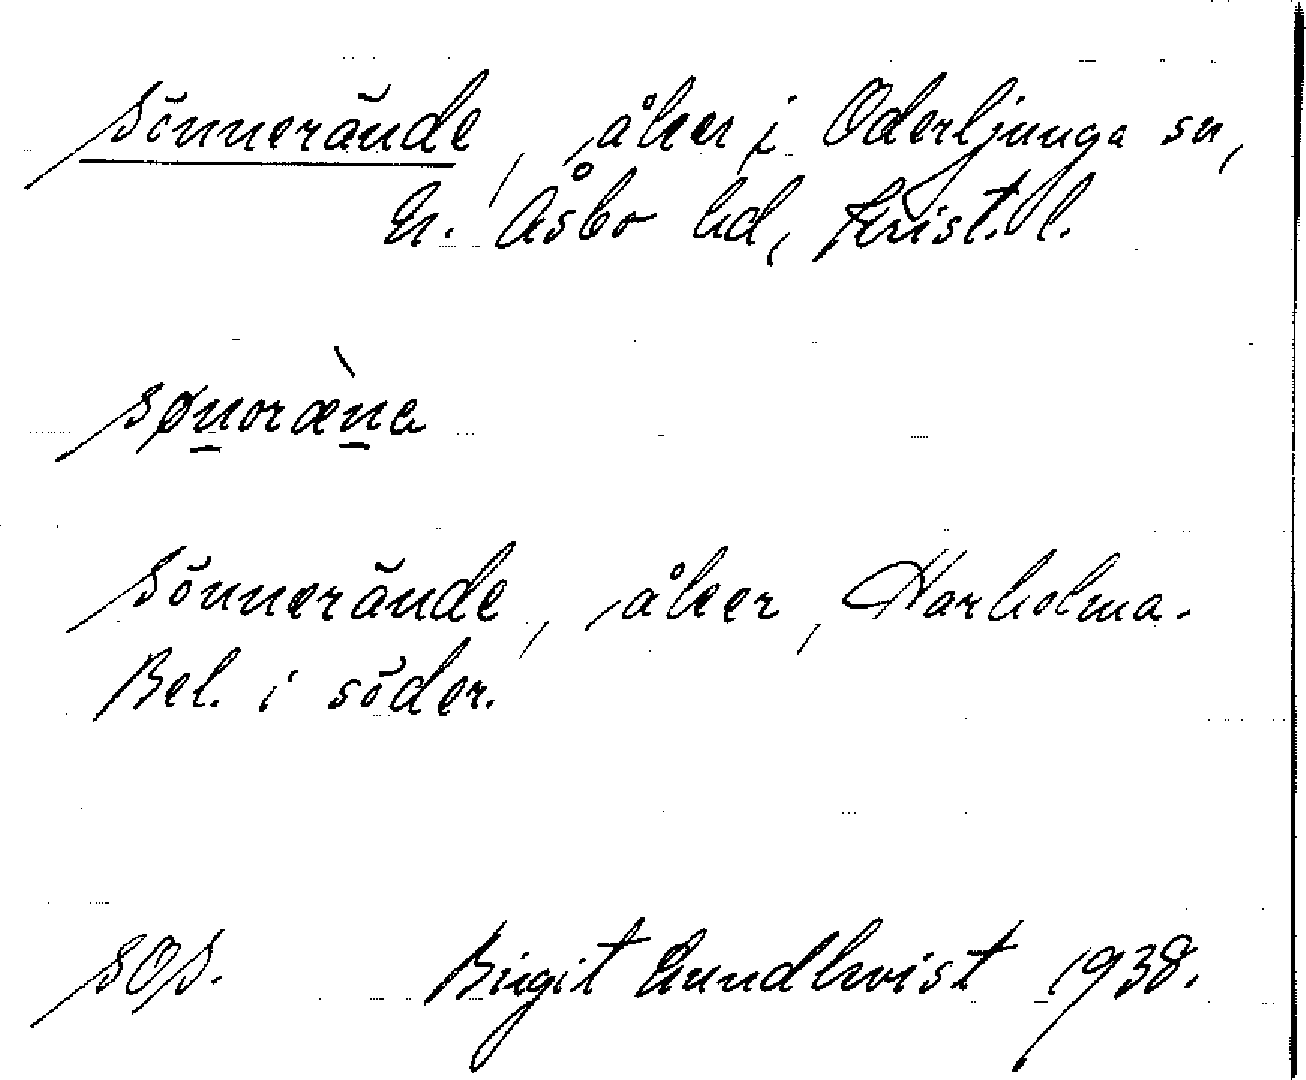 Sönnerände, åker i Oderljunga sn,
N. Åsbo hd, Krist. l.
sønoræ̀na
Sönnerände, åker, Harholma.
Bel. i söder.
SOS. Birgit Lundkvist 1938.